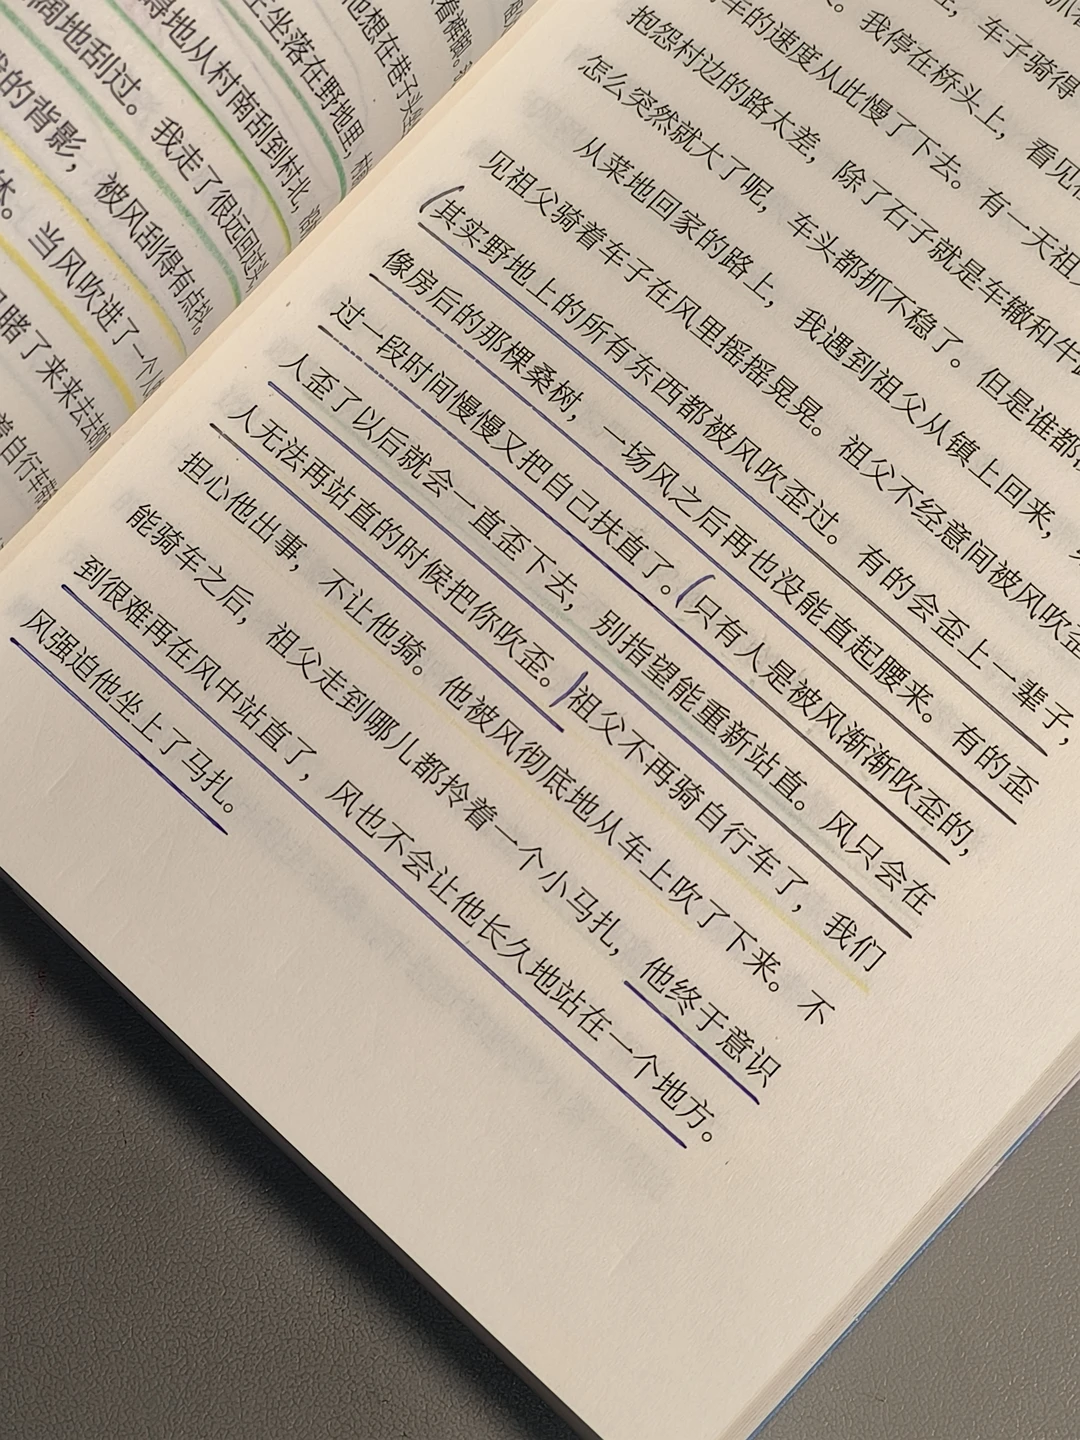 着裤脚。
他想在巷子头
主坐落在野地里，
得地从村南刮到村北，
阔地刮过。我走了很远回过头
的背影，被风刮得有点抖。
当风吹进了一个人
睹了来来去去
着自行车
车子骑得
我停在桥头上，看见
车的速度从此慢了下去。有一天祖
抱怨村边的路太差，除了石子就是车辙和牛
怎么突然就大了呢，车头都抓不稳了。但是谁都
从菜地回家的路上，我遇到祖父从镇上回来，
见祖父骑着车子在风里摇摇晃晃。祖父不经意间被风吹歪
其实野地上的所有东西都被风吹歪过。有的会歪上一辈子，
像房后的那棵桑树，一场风之后再也没能直起腰来。有的歪
过一段时间慢慢又把自己扶直了。只有人是被风渐渐吹歪的，
人歪了以后就会一直歪下去，别指望能重新站直。风只会在
人无法再站直的时候把你吹歪。祖父不再骑自行车了，我们
担心他出事，不让他骑。他被风彻底地从车上吹了下来。不
能骑车之后，祖父走到哪儿都拎着一个小马扎，他终于意识
到很难再在风中站直了，风也不会让他长久地站在一个地方。
风强迫他坐上了马扎。